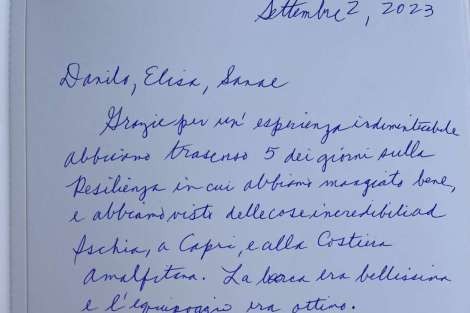 Settembre 2, 2023
Danilo, Elisa, Sanae
Grazie per un' esperienza indimenticabile
abbiamo trascorso 5 dei giorni sulla
Resilienza in cui abbiamo mangiato bene,
e abbiamo visto delle cose incredibili ad
Ischia, a Capri, e alla Costiera
Amalfitana. La barca era bellissima
e l'equipaggio era ottimo.